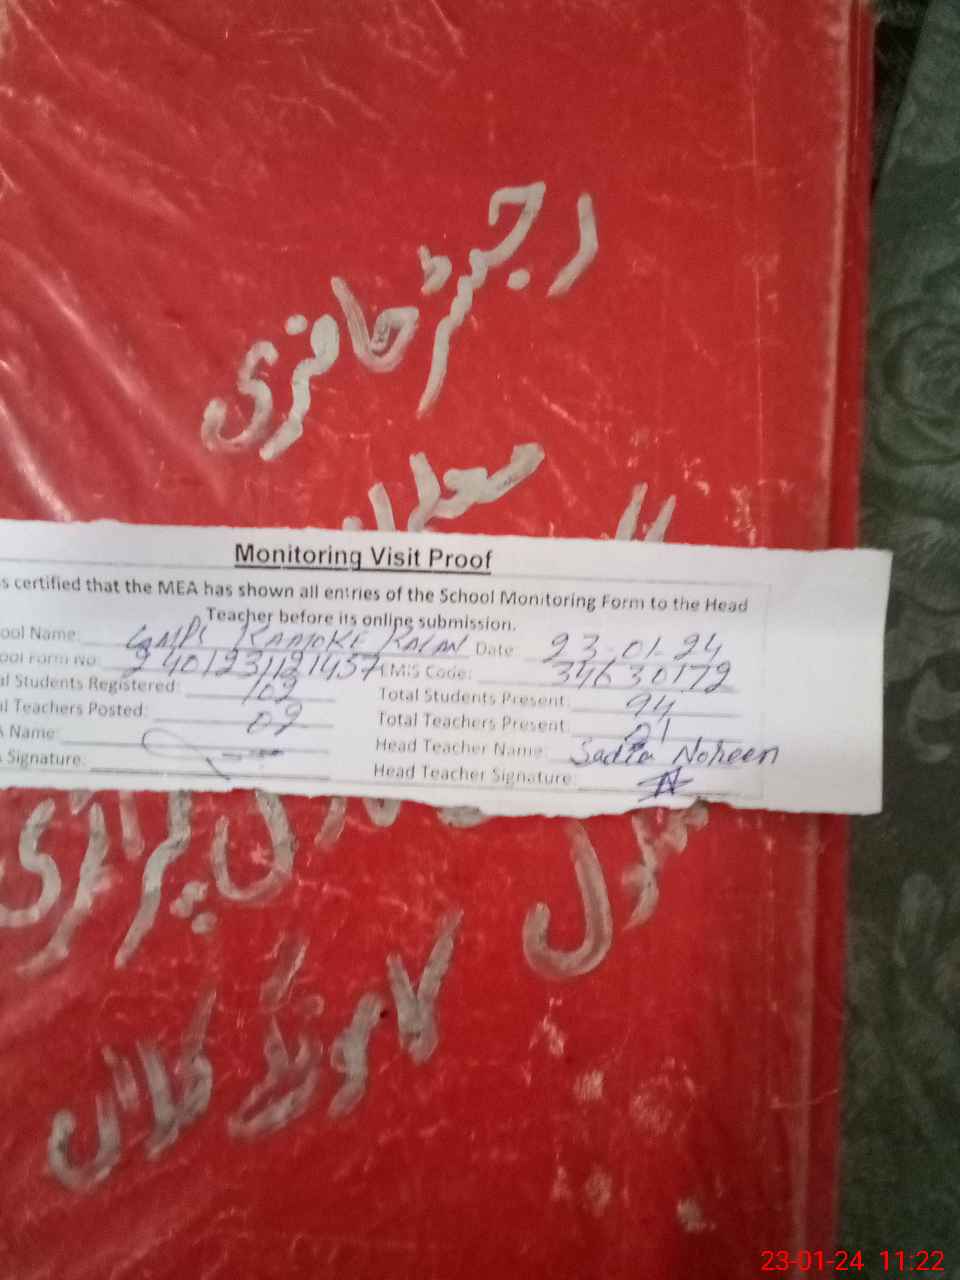 رجسٹر حاضری
Monitoring Visit Proof
s certified that the MEA has shown all entries of the School Monitoring Form to the Head
Teacher before its online submission.
ool Name: GMPS KAMOKE KALAN Date: 23-01-24
ool Form No: 2401231121457 EMIS Code: 34630172
al Students Registered: 102 Total Students Present: 94
al Teachers Posted: 02 Total Teachers Present:
Name: Head Teacher Name: Sadia Noreen
Signature: Head Teacher Signature:
کلاں
23-01-24 11:22